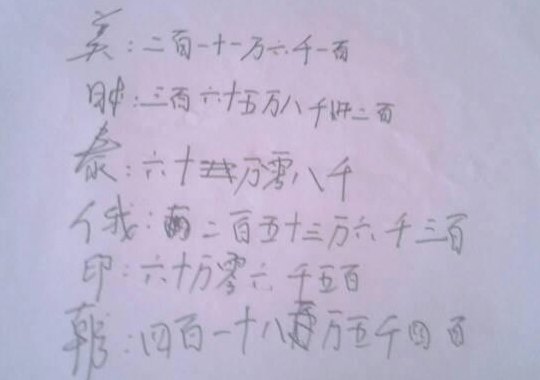 美:二百一十一万六千一百
日:三百六十五万八千二百
泰:六十万零八千
俄:二百五十三万六千三百
印:六十万零六千五百
韩:四百一十八万五千四百